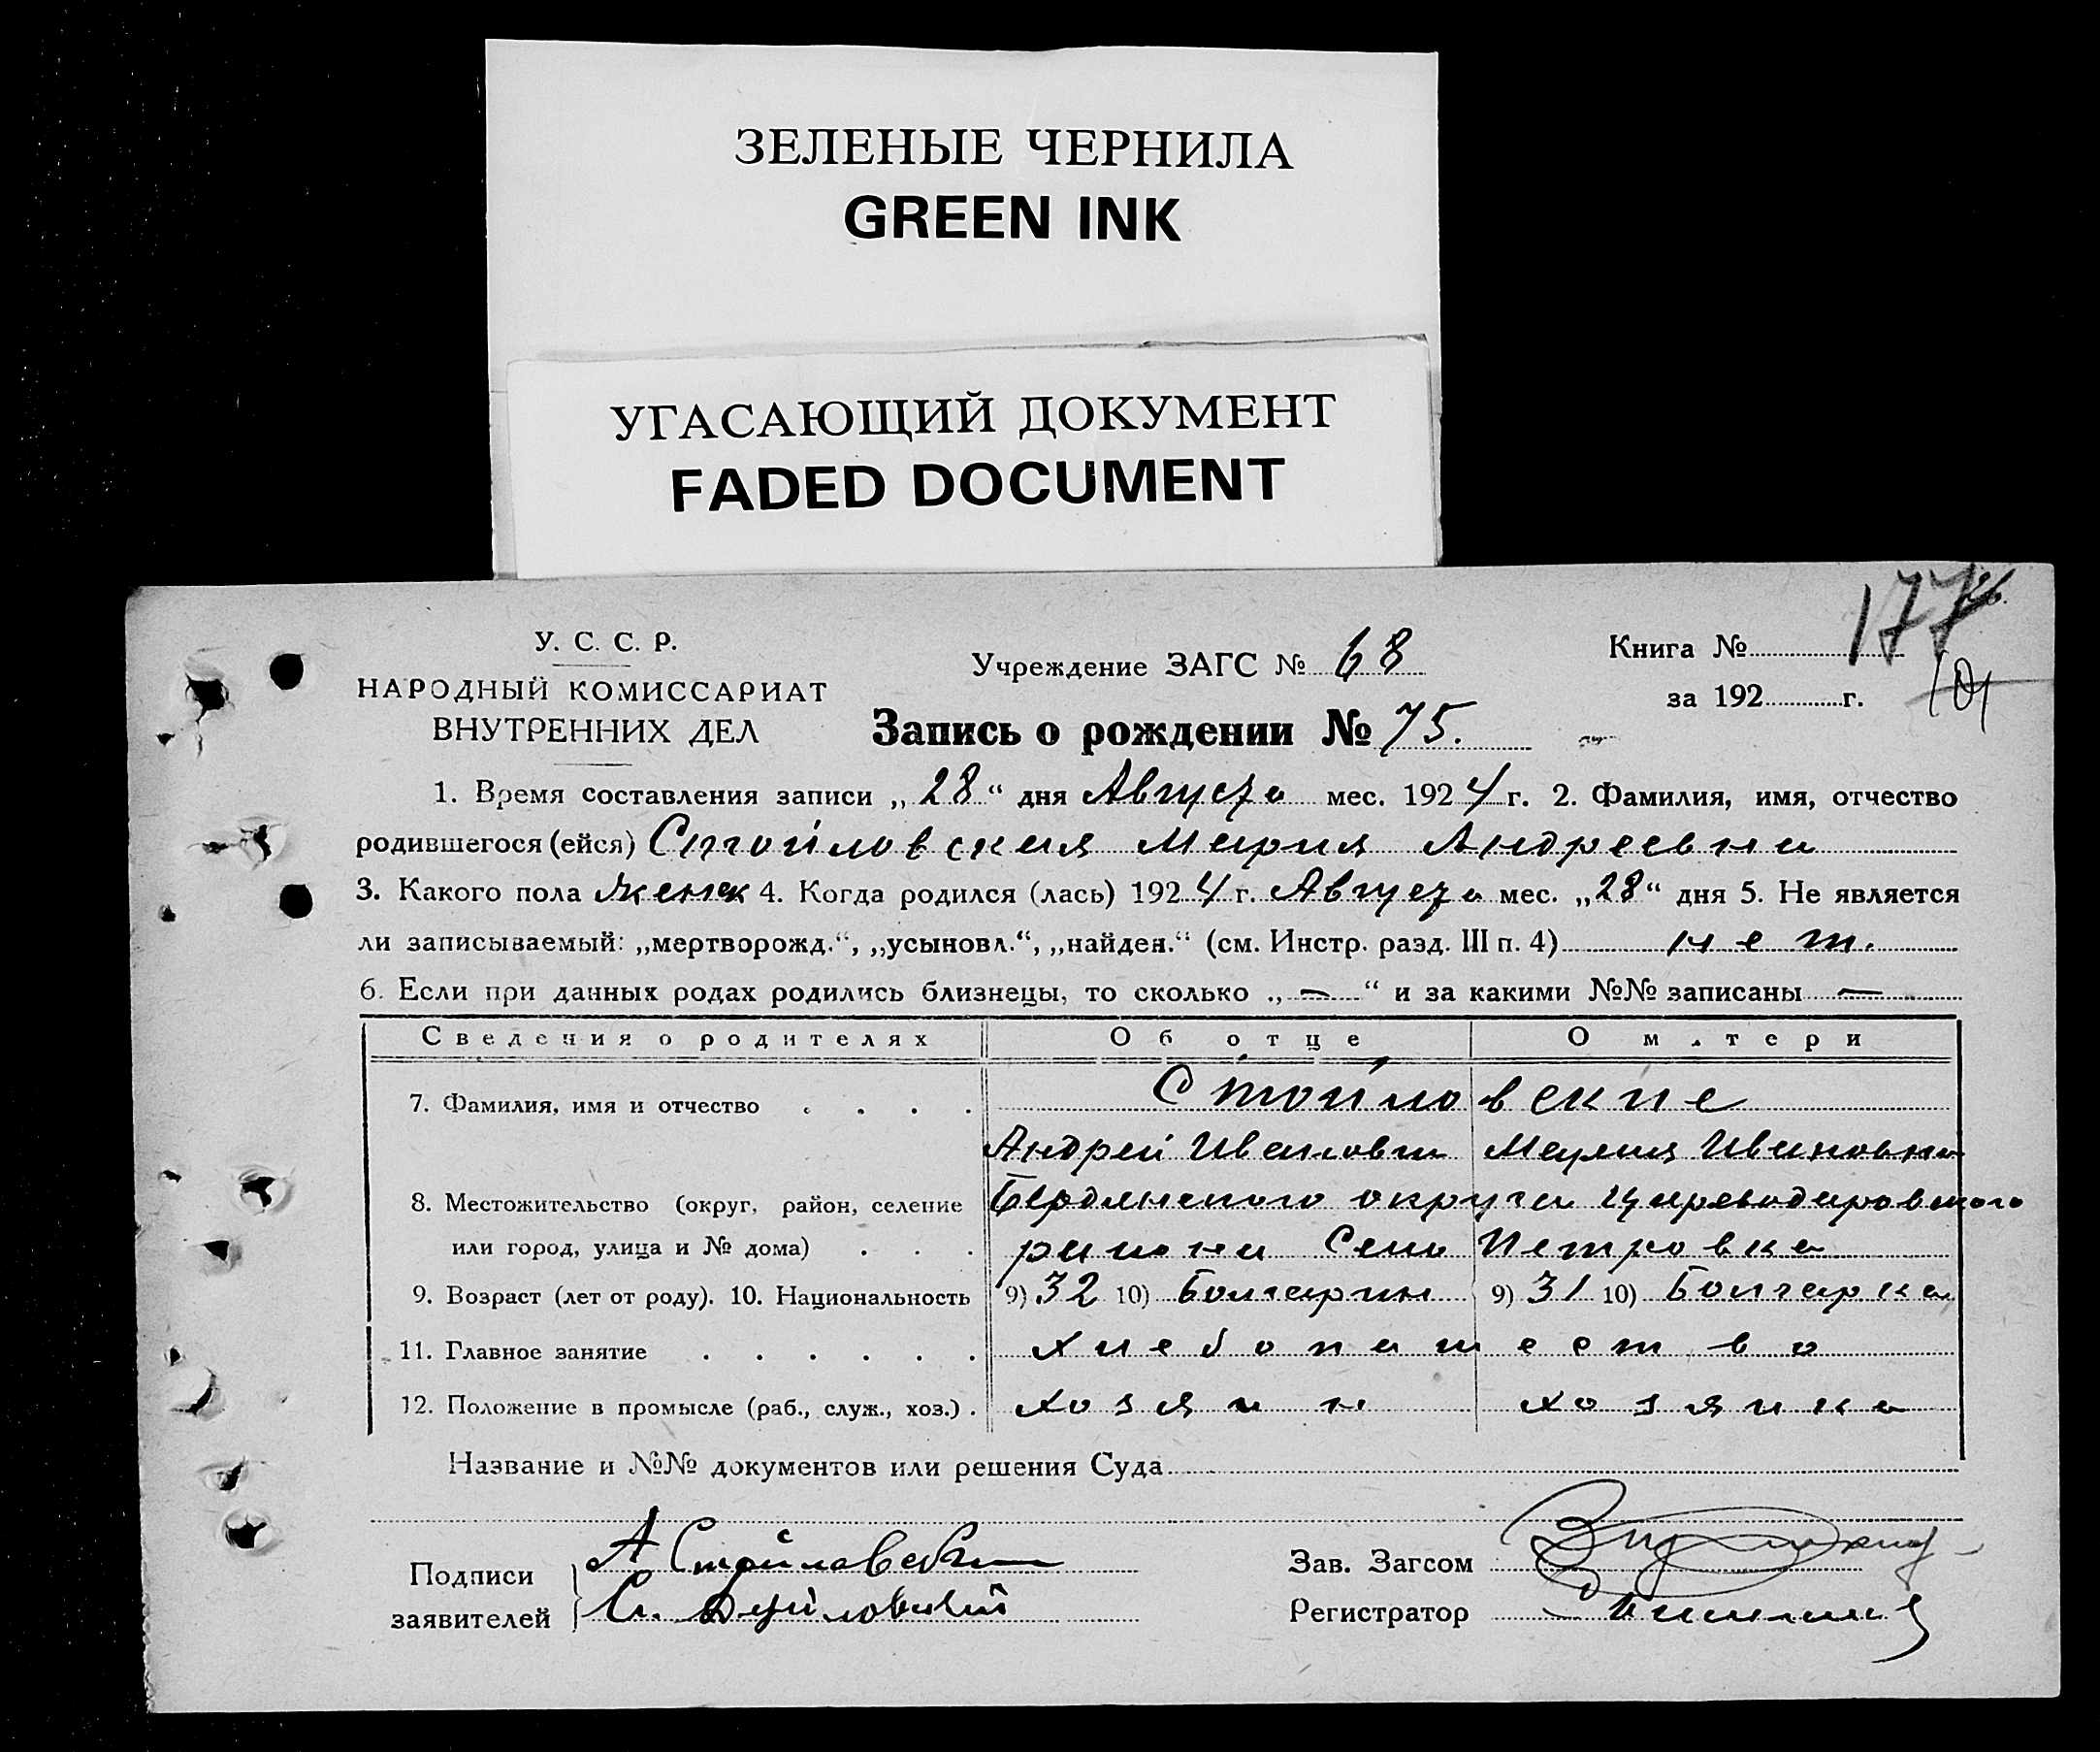 ЗЕЛЕНЫЕ ЧЕРНИЛА
GREEN INK
УГАСАЮЩИЙ ДОКУМЕНТ
FADED DOCUMENT
177
У. С. С. Р.
НАРОДНЫЙ КОМИССАРИАТ
ВНУТРЕННИХ ДЕЛ
Учреждение ЗАГС № 68
Книга №
за 192 г.
101
Запись о рождении № 75.
1. Время составления записи „28“ дня Августа мес. 1924 г. 2. Фамилия, имя, отчество
родившегося (ейся) Стойловская Мария Андреевна
3. Какого пола женск 4. Когда родился (лась) 1924 г. Августа мес. „28“ дня 5. Не является
ли записываемый: „мертворожд.“, „усыновл.“, „найден.“ (см. Инстр. разд. III п. 4) нет.
6. Если при данных родах родились близнецы, то сколько „—“ и за какими №№ записаны —
Сведения о родителях Об отце О матери
7. Фамилия, имя и отчество . . . . Стойловские
Андрей Иванович Мария Ивановна
8. Местожительство (округ, район, селение Бердянского округа Цареводаровского
или город, улица и № дома) . . . района Село Петровка
9. Возраст (лет от роду). 10. Национальность 9) 32 10) Болгарин 9) 31 10) Болгарка
11. Главное занятие . . . . . . хлебопашество
12. Положение в промысле (раб., служ., хоз.) . хозяин хозяйка
Название и №№ документов или решения Суда
Подписи
заявителей
А Стойловский
Зав. Загсом
Регистратор